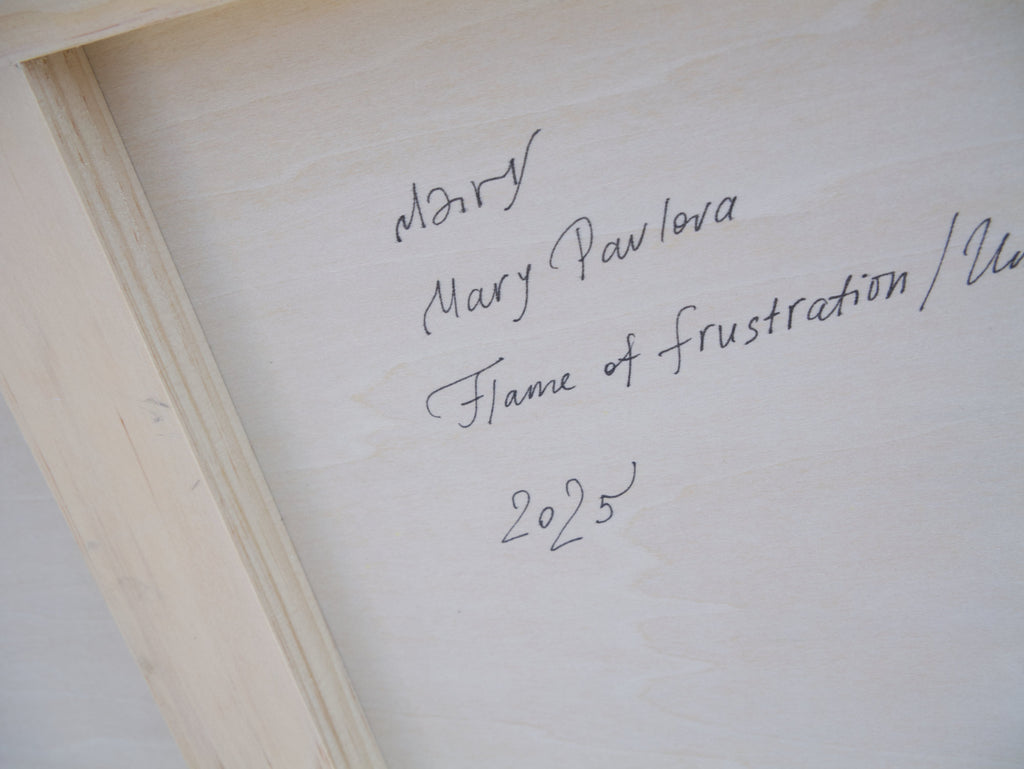 Mary
Mary Pavlova
Flame of frustration /
2025